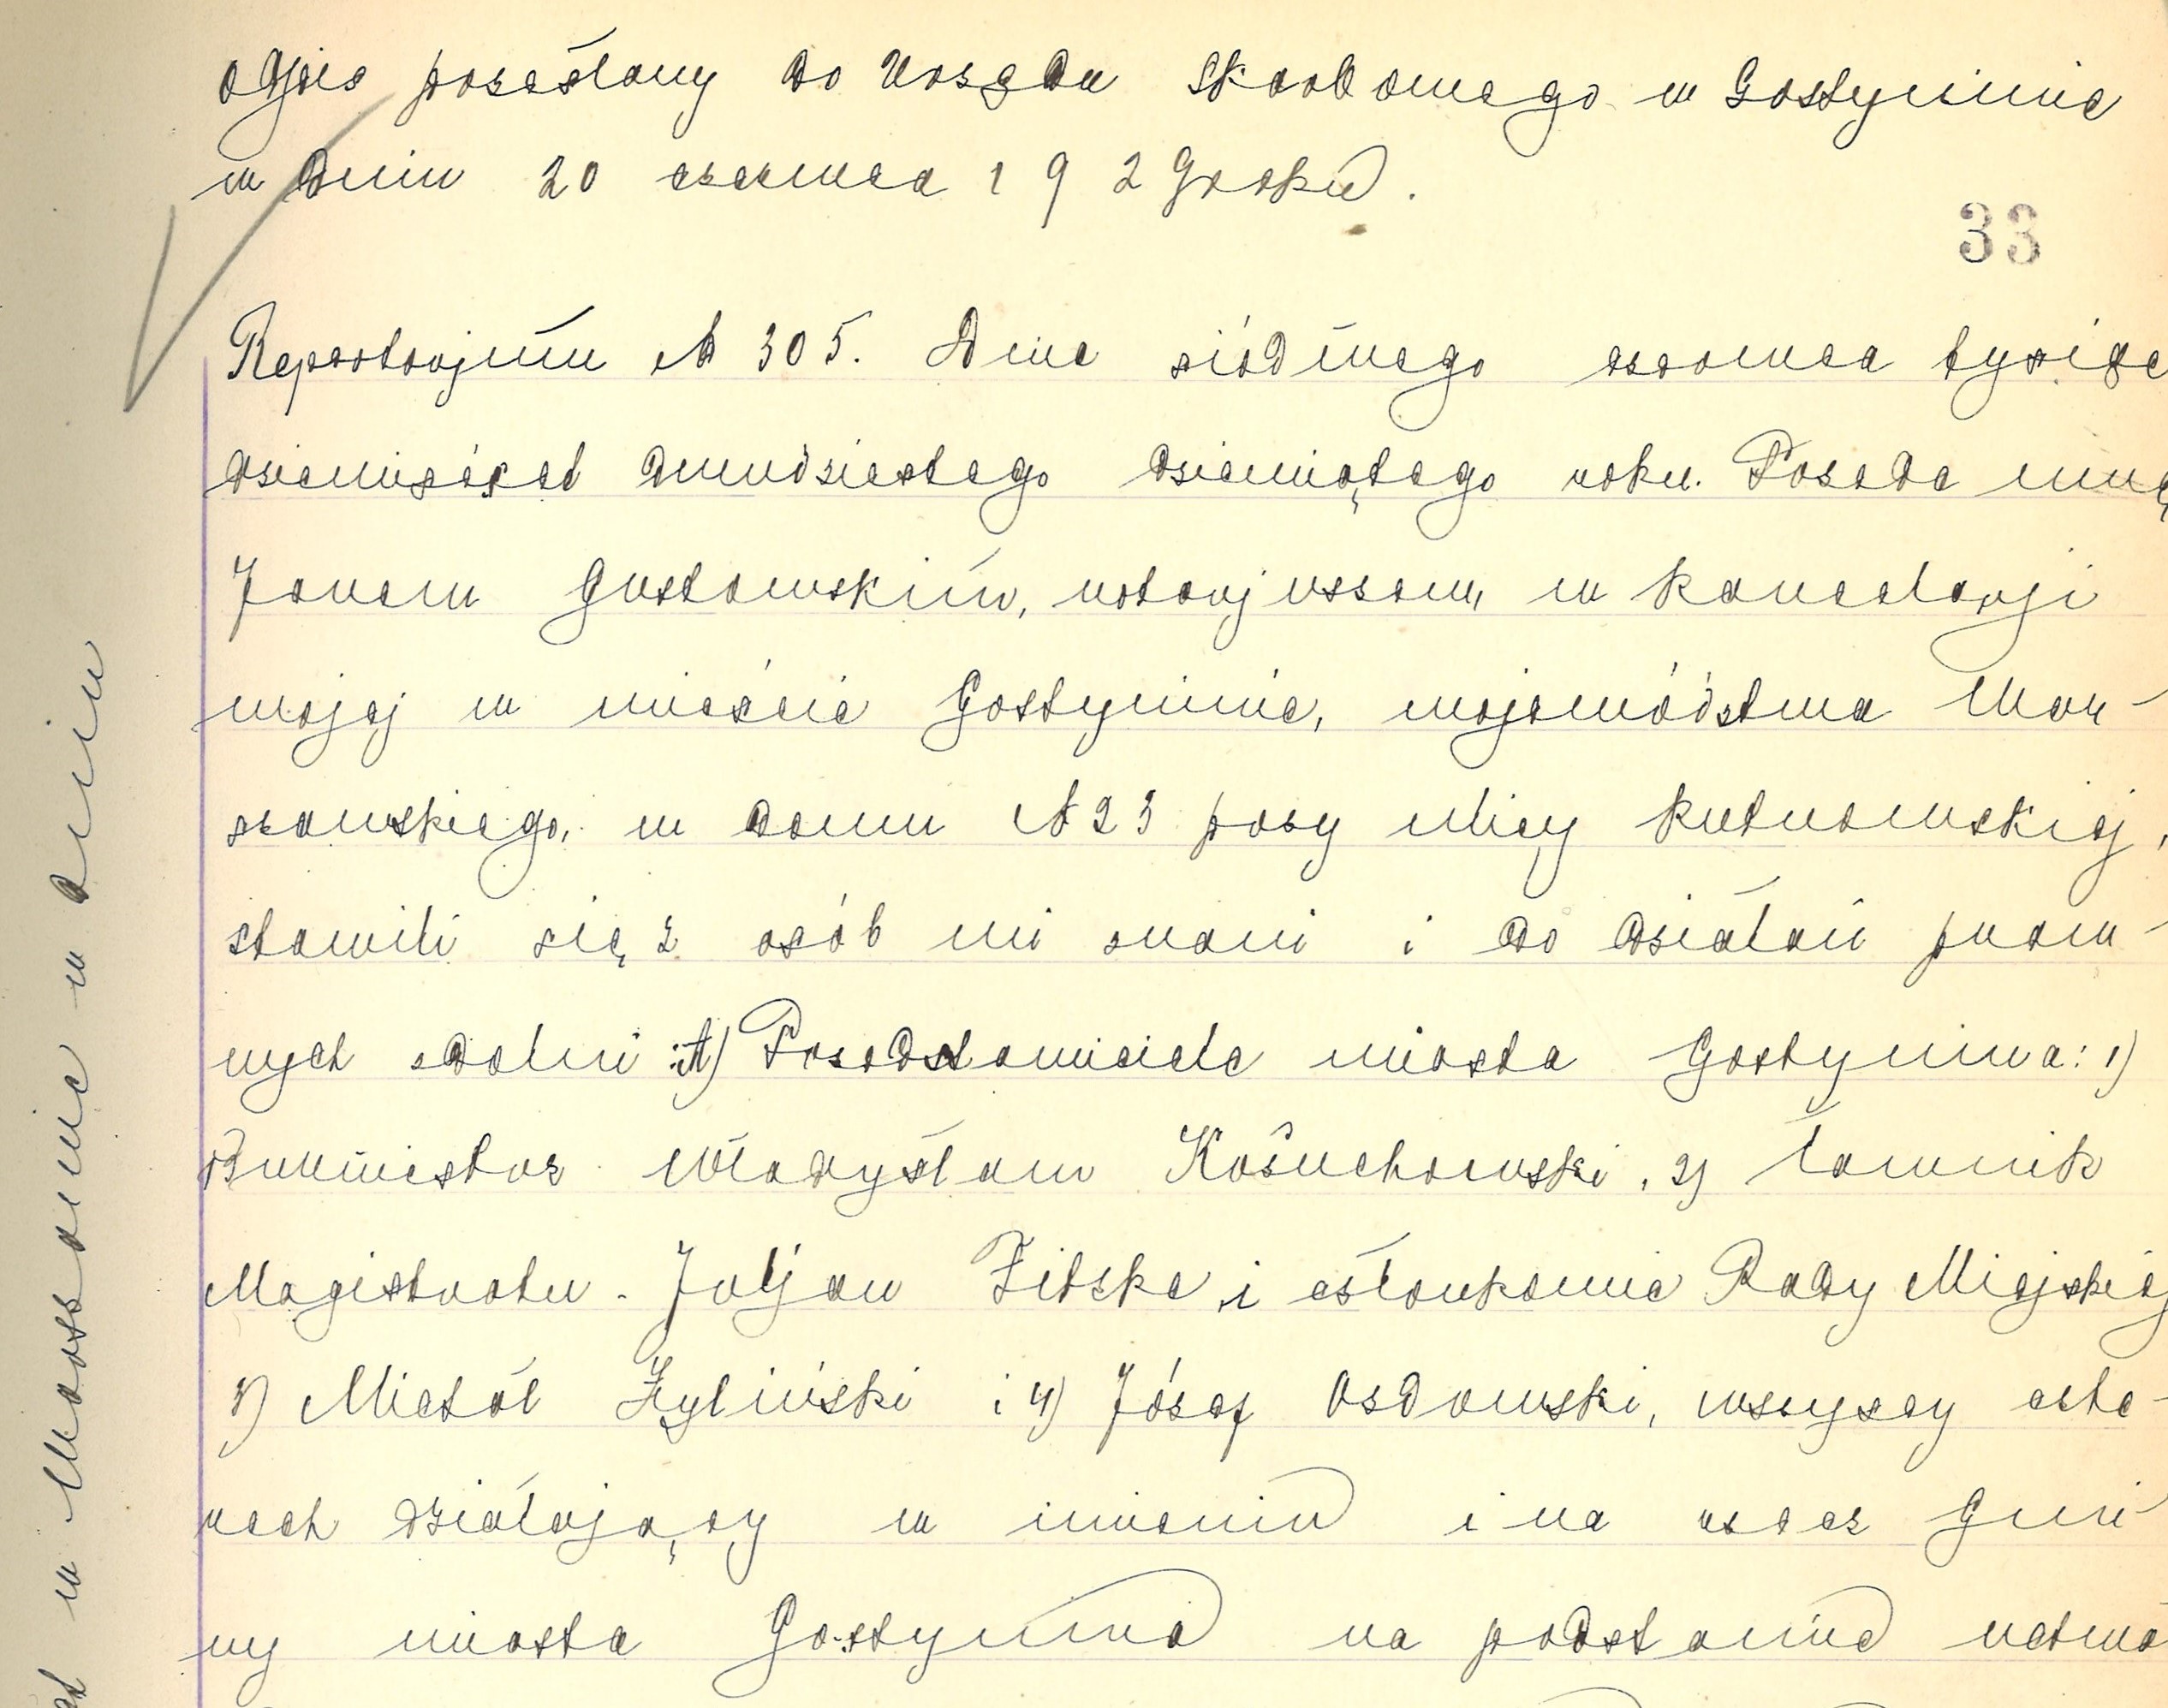 Odpis przesłany do Urzędu Skarbowego w Gostyninie
w dniu 20 czerwca 1929 roku.
33
Repertorjum № 305. Dnia siódmego czerwca tysiąc
dziewięćset dwudziestego dziewiątego roku. Przede mną
Janem Gustowskim, notarjuszem, w kancelarji
mojej w mieście Gostyninie, województwa War-
szawskiego, w domu № 23 przy ulicy Kutnowskiej,
stawili się, z osób mi znani i do działań praw-
nych zdolni: A) Przedstawiciele miasta Gostynina: 1)
Burmistrz Władysław Kożuchowski, 2) ławnik
Magistratu Juljan Filske i członkowie Rady Miejskiej
3) Michał Żyliński i 4) Józef Ozdowski, wszyscy czte-
rech działający w imieniu i na rzecz Gmi-
ny miasta Gostynina na podstawie uchwa
w Warszawie w dniu